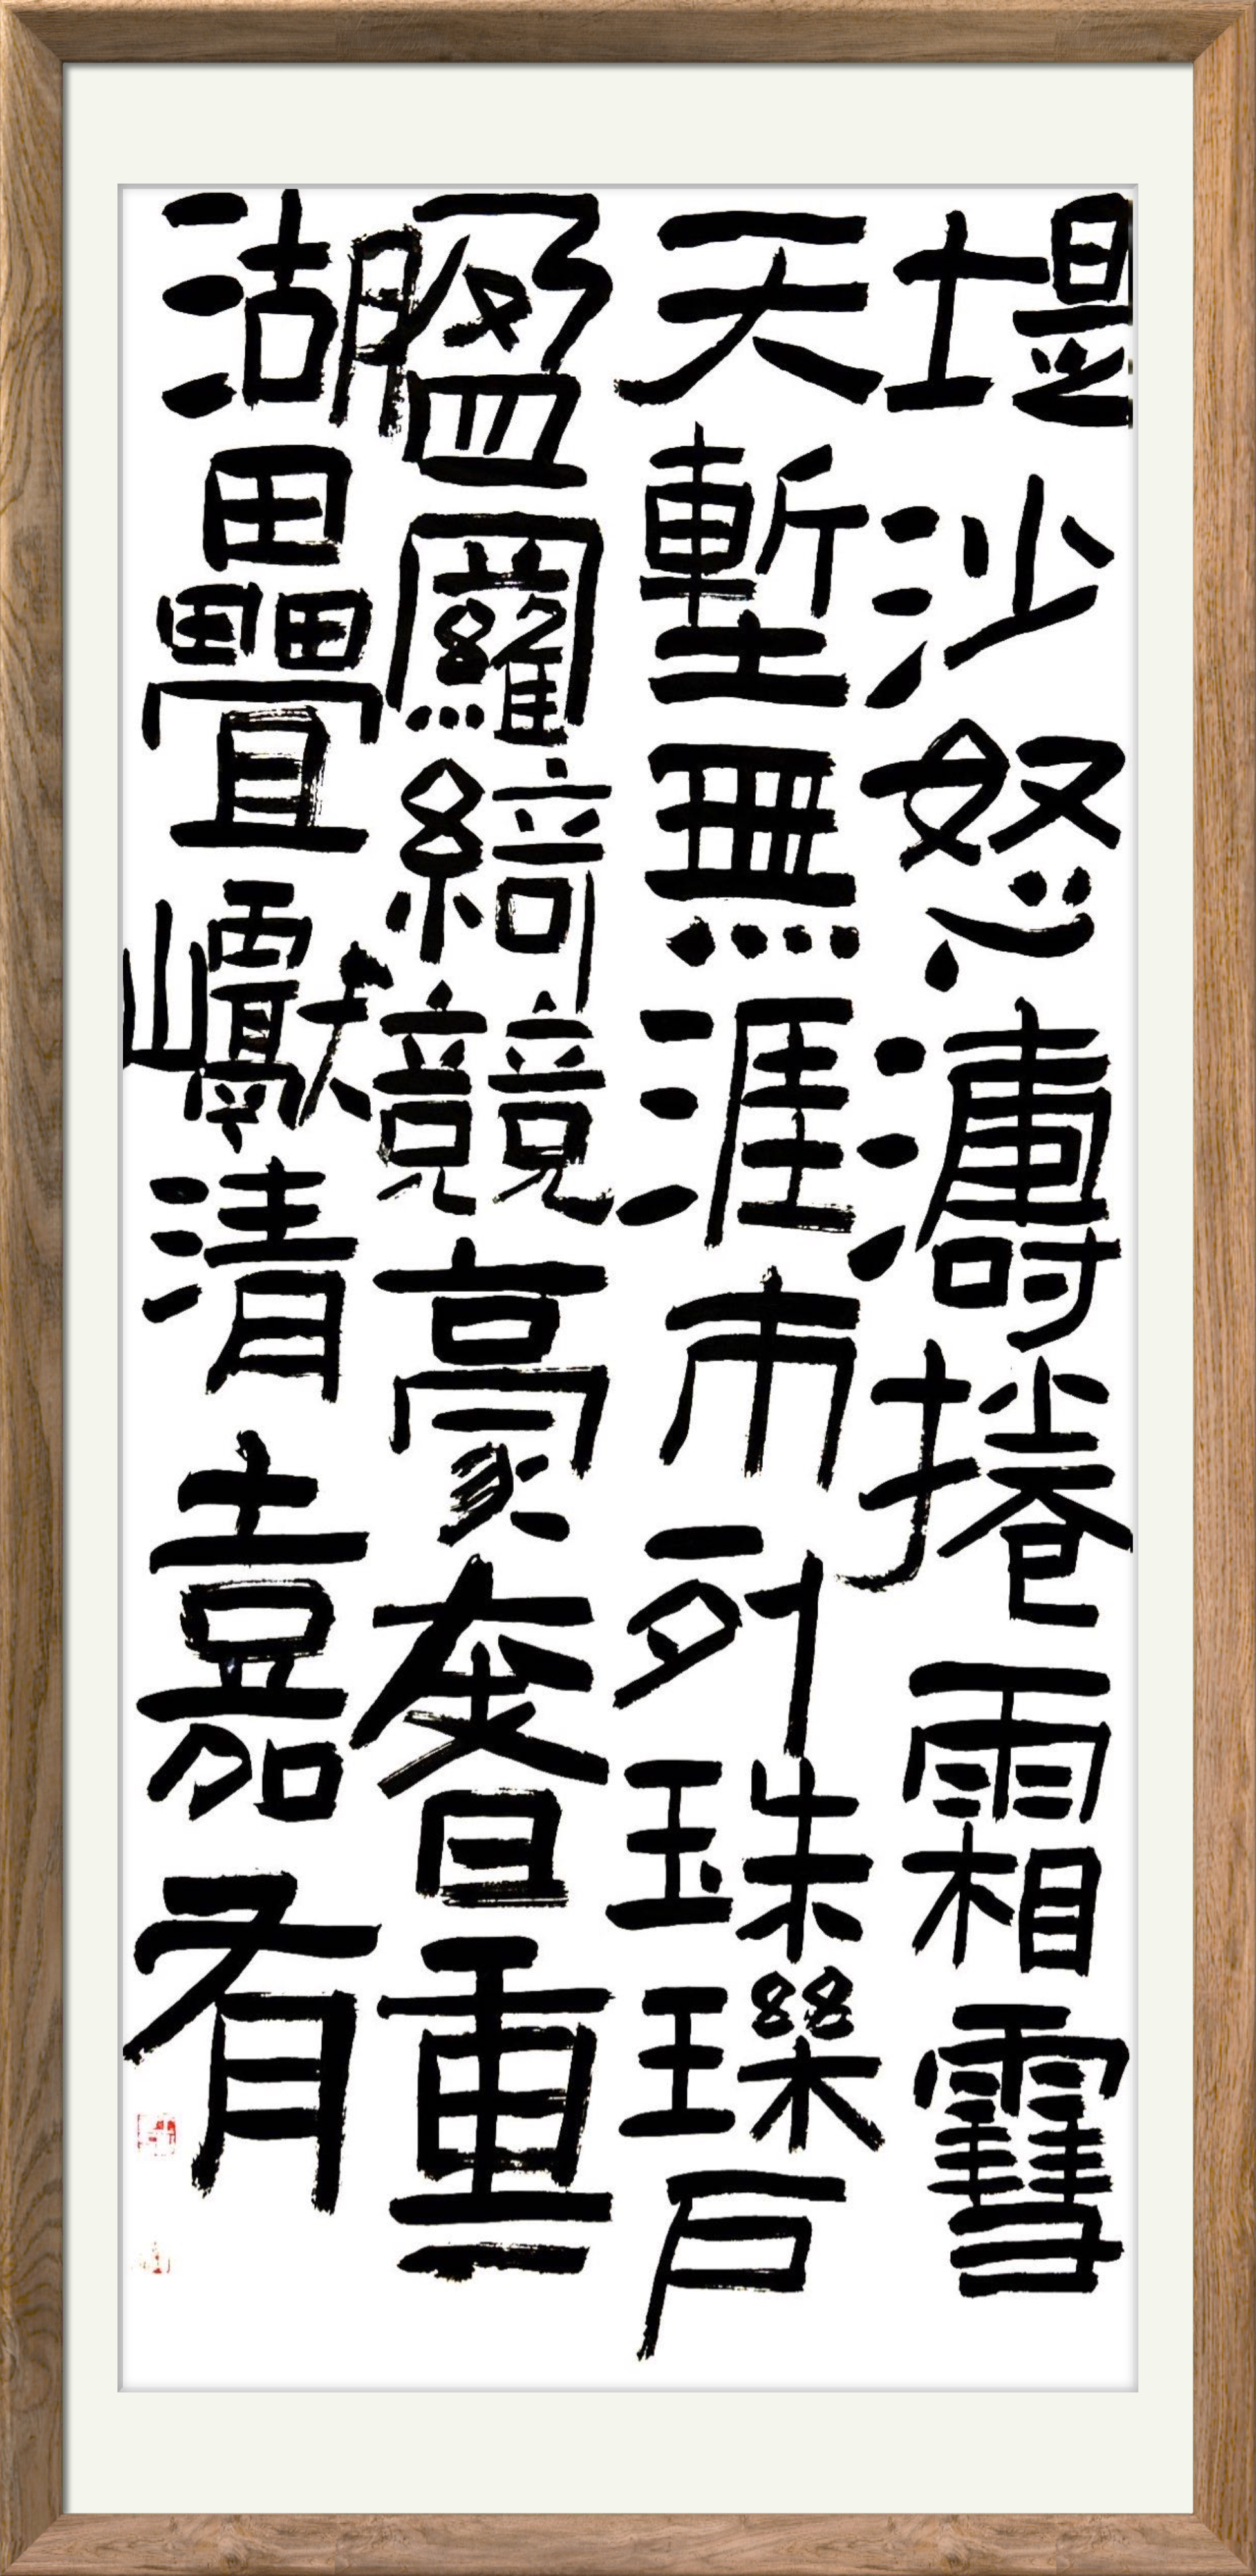 堤沙怒濤捲霜雪
天塹無涯市列珠璣戶
盈羅綺競豪奢重
湖疊巘清嘉有